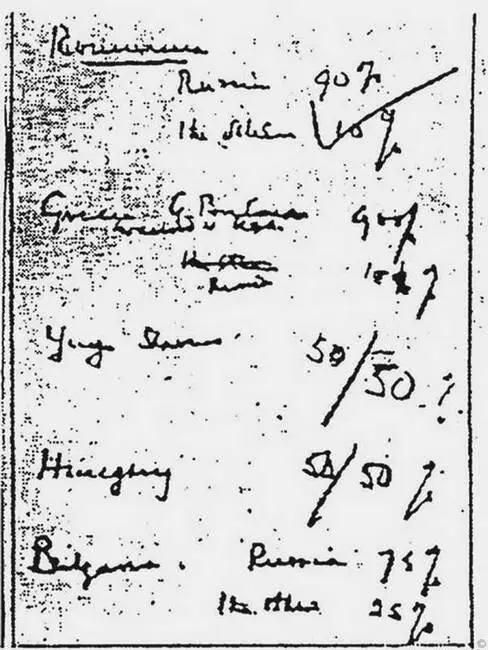 Roumania
Russia 90%
The others 10%
Greece G. Britain 90%
in accord with USA
The others
Russia 10%
Yugoslavia 50/50%
Hungary 50/50%
Bulgaria. Russia 75%
The others 25%
©